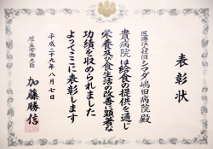 表彰状
医療法人社団シマダ
嶋田病院殿
貴病院は給食の提供を通じ
栄養及び食生活の改善に顕著な
功績を収められました
よってここに表彰します
平成二十九年八月七日
厚生労働大臣
加藤勝信